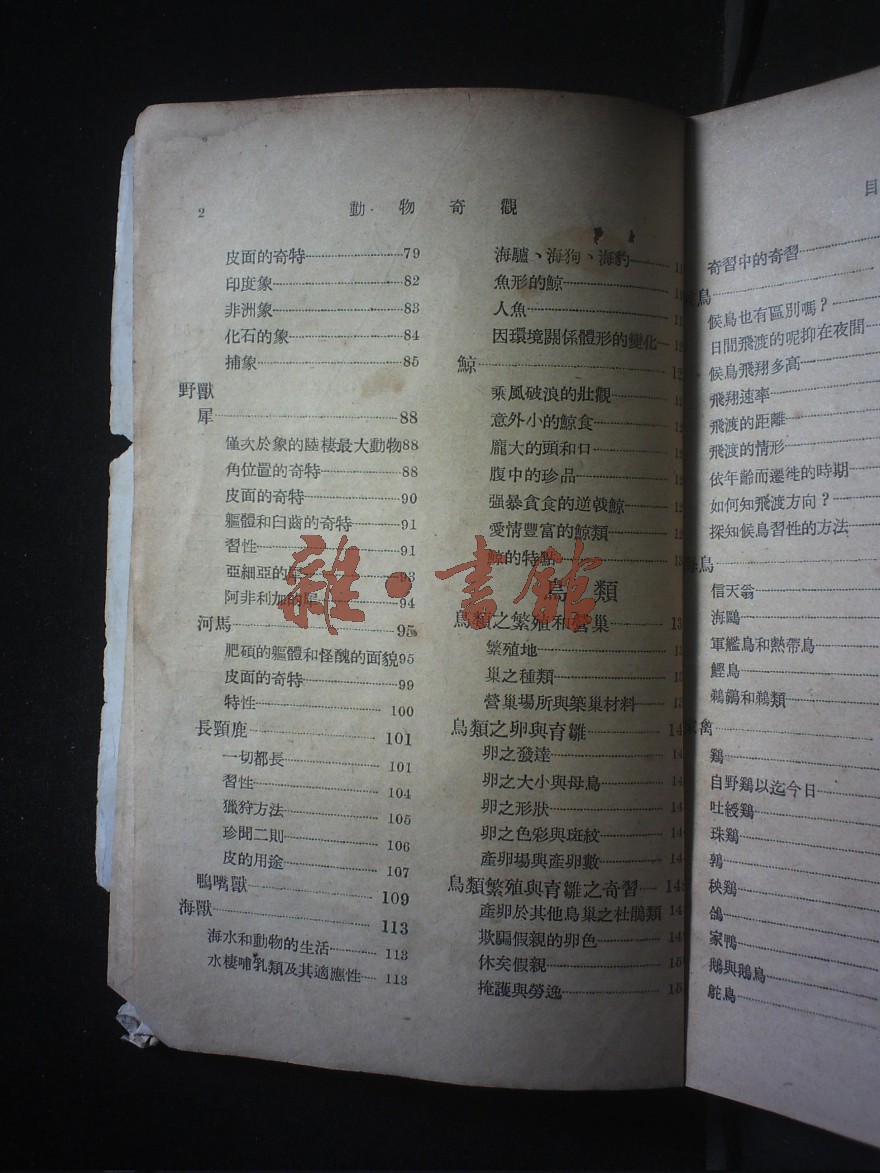 2 動物奇觀
皮面的奇特 79
印度象 82
非洲象 83
化石的象 84
捕象 85
野獸
犀 88
僅次於象的陸棲最大動物 88
角位置的奇特 88
皮面的奇特 90
軀體和臼齒的奇特 91
習性 91
亞細亞的 93
阿非利加的犀 94
河馬 95
肥碩的軀體和怪醜的面貌 95
皮面的奇特 99
特性 100
長頸鹿 101
一切都長 101
習性 104
獵狩方法 105
珍聞二則 106
皮的用途 107
鴨嘴獸 109
海獸 113
海水和動物的生活 113
水棲哺乳類及其適應性 113
海驢、海狗、海豹
魚形的鯨
人魚
因環境關係體形的變化
鯨
乘風破浪的壯觀
意外小的鯨食
龐大的頭和口
腹中的珍品
强暴貪食的逆戟鯨
愛情豐富的鯨類
鯨的特點
鳥類
鳥類之繁殖和營巢
繁殖地
巢之種類
營巢場所與築巢材料
鳥類之卵與育雛
卵之發達
卵之大小與母鳥
卵之形狀
卵之色彩與斑紋
產卵場與產卵數
鳥類繁殖與育雛之奇習
產卵於其他鳥巢之杜鵑類
欺騙假親的卵色
休矣假親
掩護與勞逸
目
奇習中的奇習
鳥
候鳥也有區別嗎？
日間飛渡的呢抑在夜間
候鳥飛翔多高
飛翔速率
飛渡的距離
飛渡的情形
依年齡而遷徙的時期
如何知飛渡方向？
探知候鳥習性的方法
鳥
信天翁
海鷗
軍艦鳥和熱帶鳥
鰹鳥
鵜鶘和鵜類
家禽
鷄
自野鷄以迄今日
吐綬鷄
珠鷄
鶉
秧鷄
鴿
家鴨
鵝與鵝鳥
鴕鳥
雜·書館